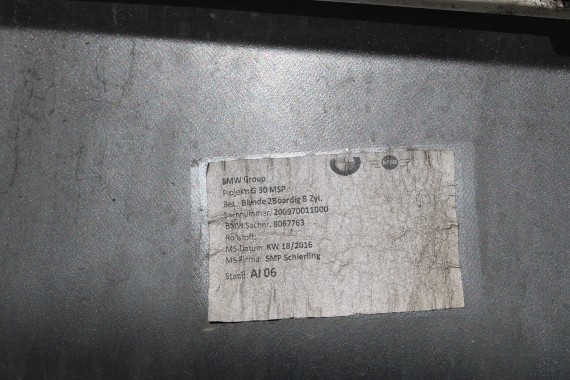 BMW Group
Projekt: G 30 MSP
Bez.: Blende 2Boardig 8 Zyl.
Sachnummer: 200970011000
BMW Sachnr. 8067763
Rohstoff:
MS-Datum: KW 18/2016
MS-Firma: SMP Schierling
Stand: AI 06